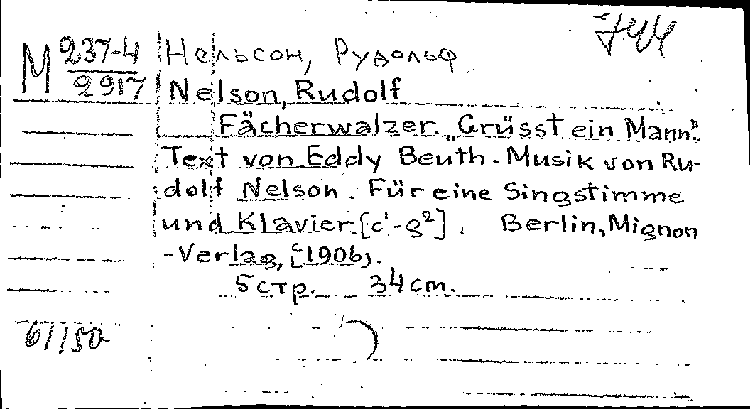 М 237-4
2917
Нельсон, Рудольф
Nelson, Rudolf
Fächerwalzer. „Grüsst ein Mann“.
Text von Eddy Beuth. Musik von Ru-
dolf Nelson. Für eine Singstimme
und Klavier. [c¹-g²]. Berlin, Mignon
-Verlag, [1906].
5 стр. 34 cm.
61150